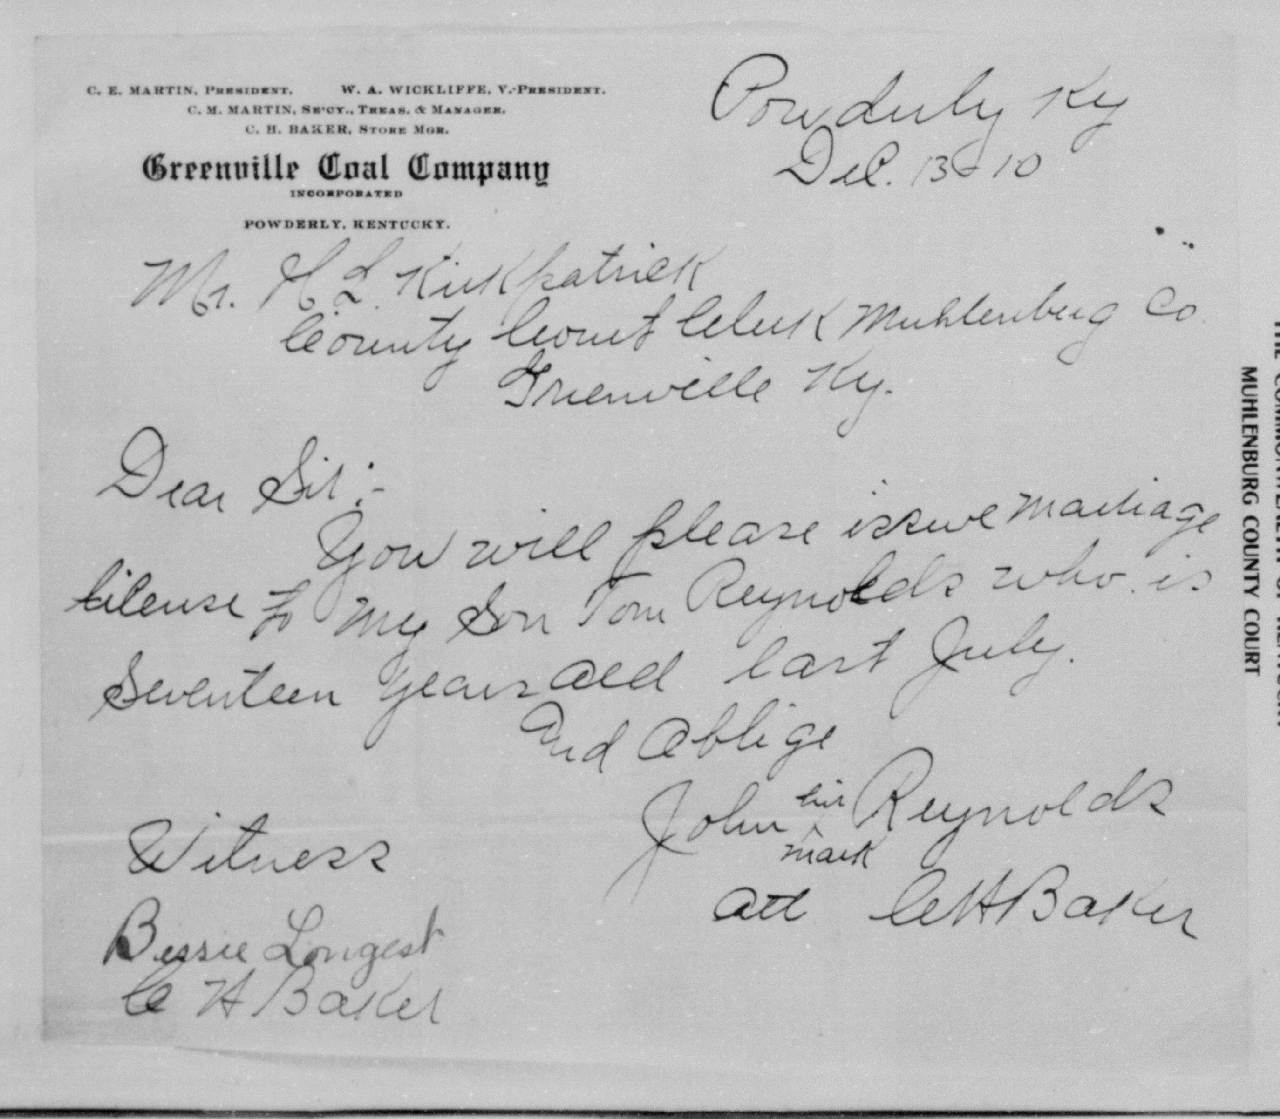 C. E. MARTIN, PRESIDENT. W. A. WICKLIFFE, V.-PRESIDENT.
C. M. MARTIN, SE'CY., TREAS, & MANAGER.
C. H. BAKER, STORE MGR.
Greenville Coal Company
INCORPORATED
POWDERLY, KENTUCKY.
Powderly Ky
Dec. 13-10
Mr. H L Kirkpatrick
County Court Clerk Muhlenberg Co
Greenville Ky.
Dear Sir:-
You will please issue marriage
license to my Son Tom Reynolds who is
Seventeen years old last July.
And Oblige
John his Reynolds
x
mark
Att C H Baker
Witness
Bessie Longest
C H Baker
MUHLENBURG COUNTY COURT